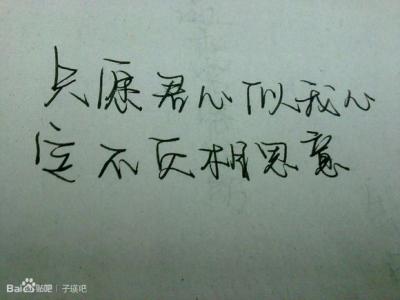 只愿君心似我心
定不负相思意
Bai贴吧 | 子瑛吧